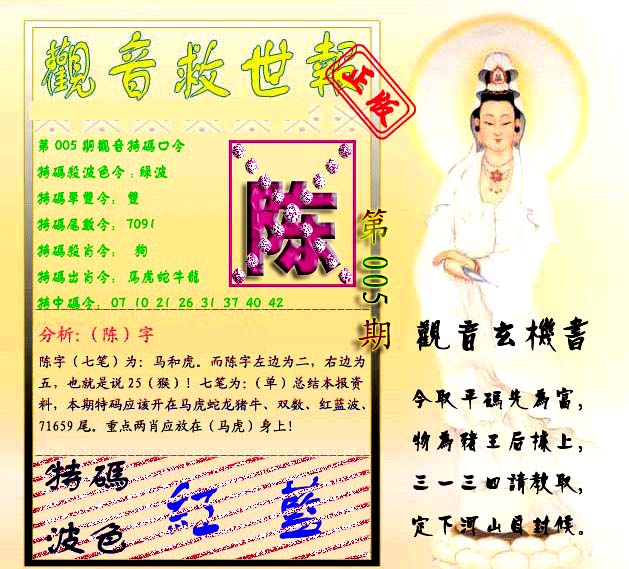 觀音救世報
正版
第005期觀音特碼口令
特碼殺波色令:綠波
特碼單雙令: 雙
特碼尾數令: 7091
特碼殺肖令: 狗
特碼出肖令: 馬虎蛇牛龍
特中碼令: 07 10 21 26 31 37 40 42
陈
第005期
分析:(陈)字
陈字(七笔)为:马和虎。而陈字左边为二,右边为
五,也就是说25(猴)!七笔为:(单)总结本报资
料,本期特码应该开在马虎蛇龙猪牛、双数、红蓝波、
71659尾。重点两肖应放在(马虎)身上!
特碼
波色
紅 藍
觀音玄機書
今取平碼先為富,
物為豬王后據上,
三一三四請教取,
定下河山自封侯。